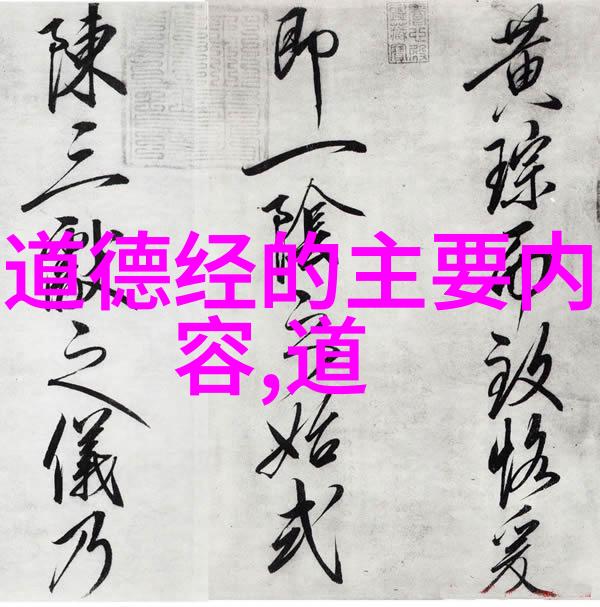 道德经的主要内
容,道
黄琮致恪爰
即一陰始式
陳三獻之儀乃